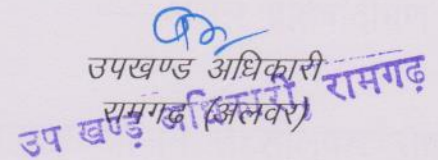 उपखण्ड अधिकारी
रामगढ (अलवर)
उप खण्ड अधिकारी, रामगढ़